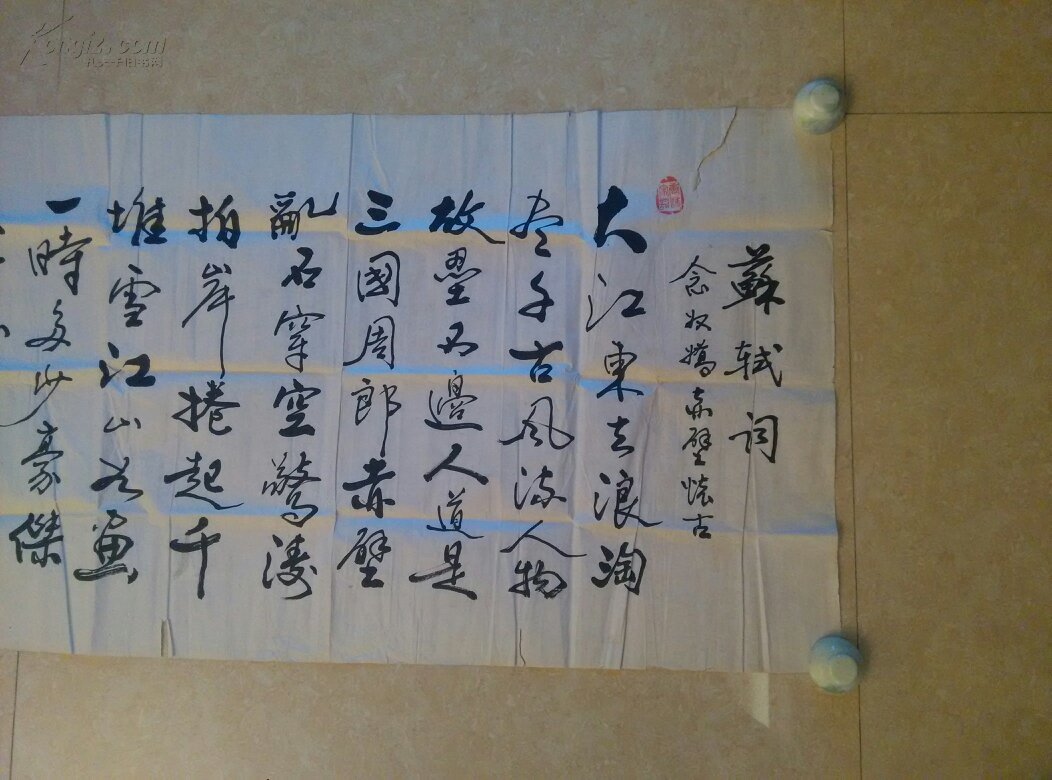 蘇軾词
念奴嬌赤壁懷古
大江東去浪淘
尽千古风流人物
故壘西邊人道是
三國周郎赤壁
亂石穿空驚濤
拍岸捲起千
堆雪江山如画
一時多少豪傑
Kongfz.com
孔夫子旧书网